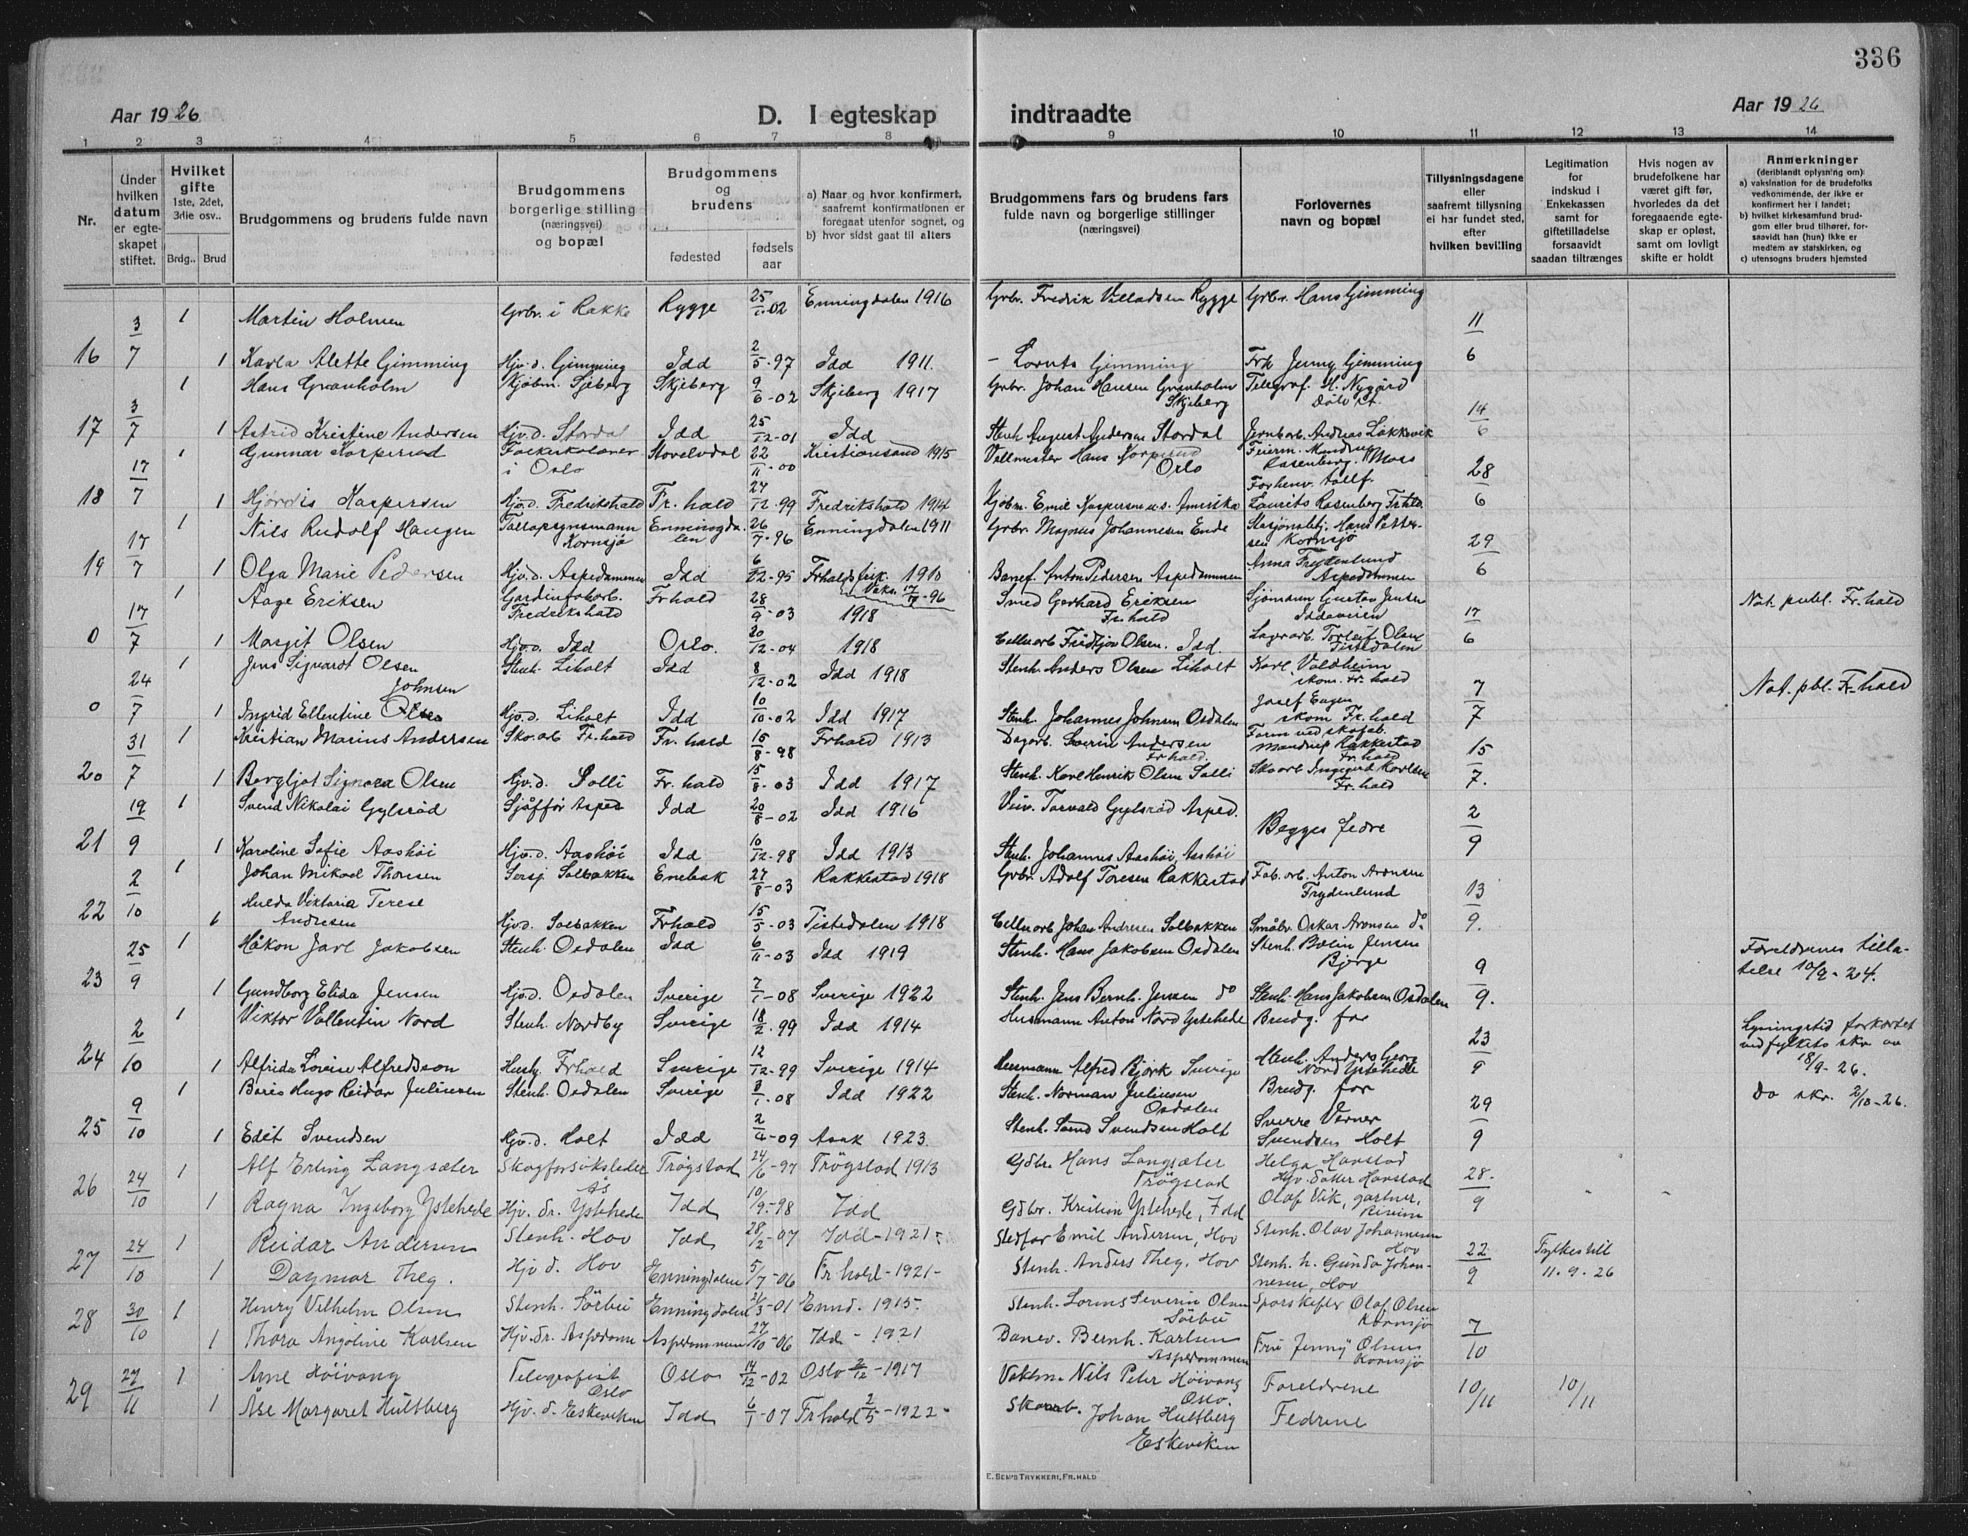 336
Aar 1926
D. I egteskap
indtraadte
Aar 1926
1 2 3 4 5 6 7 8 9 10 11 12 13 14
Nr.
Under hvilken datum er egteskapet stiftet.
Hvilket gifte
1ste, 2det, 3die osv..
Brdg..
Brud
Brudgommens og brudens fulde navn
Brudgommens borgerlige stilling
(næringsvei)
og bopæl
Brudgommens og brudens
fødested
fødsels aar
a) Naar og hvor konfirmert, saafremt konfirmationen er foregaat utenfor sognet, og
b) hvor sidst gaat til alters
Brudgommens fars og brudens fars
fulde navn og borgerlige stillinger
(næringsvei)
Forlovernes
navn og bopæl
Tillysningsdagene
eller
saafremt tillysning
ei har fundet sted,
efter
hvilken bevilling
Legitimation
for
indskud i
Enkekassen
samt for
giftetilladelse
forsaavidt
saadan tiltrænges
Hvis nogen av
brudefolkene har
været gift før,
hvorledes da det
foregaaende egte-
skap er opløst,
samt om lovligt
skifte er holdt
Anmerkninger
(deriblandt oplysning om:
a) vaksination for de brudefolks
vedkommende, der ikke er
konfirmert her i landet;
b) hvilket kirkesamfund brud-
gom eller brud tilhører, for-
saavidt han (hun) ikke er
medlem av statskirken, og
c) utensogns bruders hjemsted
3/7 1 Martin Holmen Grbr. i Rakke Rygge 25/1-02 Enningdalen 1916 Grbr. Fredrik Villadsen Rygge Grbr. Hans Gimming 11/6
16 1 Karla Alette Gimming Hjv. d. Gimming Idd 2/5-97 Idd 1911. - Gimming Frk Jenny Gimming
3/7 1 Hans Granholm Kjøbm. Sjeberg Skjeberg 9/6-02 Skjeberg 1917 Grbr. Johan Hansen Granholm Skjeberg Telegraf. H. Nygård 14/6
17 1 Astrid Kristine Andersen Hjv. d. Stordal Idd 25/12-01 Idd Stenh. August Andersen Stordal Jernbarb. Andreas Lakkevik
17/7 1 Gunnar i Oslo 22/11-00 Kristiansand 1915 Hans Oslo Rosenberg. Moss 28/6
18 1 Hjørdis Kaspersen Hjv. d. Fredrikshald Fr. hald 27/12-99 Fredrikshald 1914 Kjøbm. Emil Kaspersen Amerika Laurits Rosenberg Frhld
17/7 1 Nils Rudolf Haugen Kornsjø Enningdalen 26/7-96 Enningdalen 1911 Grbr. Magnus Johannesen Ende Stasjonsbtj. Hans Pettersen Kornsjø 29/6
19 1 Olga Marie Pedersen Hjv. d. Aspedammen Idd 6/12-95 Frhald 1910 Banef. Anton Pedersen Aspedammen Anna Frydenlund Aspedammen
17/7 1 Aage Eriksen Fredrikshald Frhald 28/9-03 1918 Smed Gerhard Eriksen Fr.hald Sjømann Gustav Jensen Iddeveien 17/6 Not. publ. Fr.hald
0 1 Margit Olsen Hjv. d. Idd Oslo. 20/12-04 1918 Celluorb. Fridtjov Olsen. Idd. Lagerarb. Torleif Olsen Tistedalen
24/7 1 Jens Sigvardt Olsen Stenh. Liholt Idd 8/12-02 Idd 1918 Stenh. Anders Olsen Liholt Karl Valdheim skom. Fr. hald 7/7 Not. pbl. Fr-hald
0 1 Ingrid Ellentine Johnsen Hjv. d. Liholt Idd 10/10-02 Idd 1917 Stenh. Johannes Johnsen Osdalen Josef Eugen skom Fr. hald
31/7 1 Kristian Marius Andersen Sko. arb Fr. hald Fr. hald 15/8-98 Frhald 1913 Dagarb. Severin Andersen Fr hald. Form ved skofab. Mandrup Rakkestad Fr. hald 15/7.
20 1 Borgljot Signora Olsen Hjv. d. Solli Fr. hald 15/8-03 Idd 1917 Stenh. Karl Henrik Olsen Solli Skoarb Ingegerd Karlsen Fr. hald
19/9 1 Svend Nikolai Gylsrød Sjåffør Asped Idd 20/8-02 Idd 1916 Torvald Gylsrød Asped. Begges fedre 2/9
21 1 Karoline Sofie Aashøi Hjv. d. Aashøi Idd 10/12-98 Idd 1913 Stenh. Johannes Aashøi, Aashøi
2/10 1 Johan Mikael Thorsen Sersj. Solbakken Enebak 27/8-03 Rakkestad 1918 Grbr. Adolf Toresen Rakkestad Fab. arb. Anton Aronsen Frydenlund 13/9.
22 1 Hulda Viktoria Terese Andresen Hjv. d. Solbakken Frhald 15/5-03 Tistedalen 1918 Celluorb Johan Andresen Solbakken Småbr. Oskar Aronsen do
25/9 1 Håkon Jarl Jakobsen Stenh. Osdalen Idd 6/11-03 Idd 1919 Stenh. Hans Jakobsen Osdalen Stenh. Jensen Bjerge 9/9. Foreldrenes tillatelse 10/9-24.
23 1 Gundborg Elida Jensen Hjv. d. Osdalen Sverige 7/1-08 Sverige 1922 Stenh. Jens Bernh. Jensen do Stenh. Hans Jakobsen Osdalen
2/10 1 Viktor Vallentin Nord Stenh. Nordby Sverige 18/2-99 Idd 1914 Husmann Anton Nord Ystehede Brudg. far 23/9 Lysningstid forkortet ved fylkets skr. av 18/9-26.
24 1 Alfrida Lovise Alfredsson Hush. Frhald Sverige 12/12-99 Sverige 1914 Husmann Alfred Bjørk Sverige Stenh. Anders Georg Nord Ystehede
9/10 1 Boris Hugo Reidar Juliusen Stenh. Osdalen Sverige 8/1-08 Idd 1922 Stenh. Norman Juliusen Osdalen Brudg. far 29/9 Do skr. 2/10-26.
25 1 Edit Svendsen Hjv. d. Holt Idd 2/4-09 Asak 1923. Stenh. Svendsen Holt Sverre Verner Svendsen Holt
26 24/10 1 Alf Erling Langsæter Skogforsøksleder Ås Trøgstad 24/6-97 Trøgstad 1913 Gdbr. Hans Langsæter Trøgstad Helga Havstad Hjv. datter Havstad 28/9
1 Ragna Ingeborg Ystehede Hjv. dr. Ystehede Idd 10/9-98 Idd Gdbr. Kristian Ystehede, Idd Olaf Vik, gartner,
27 24/10 1 Reidar Andersen Stenh. Hov Idd 28/2-07 Idd-1921- Stedfar Emil Andersen, Hov Stenh. Olav Johannesen Hov 22/9 Fylkestill 11.9.26
1 Dagmar Theg. Hjv d. Hov Enningdalen 5/7-06 Fr hald-1921- Stenh. Anders Theg, Hov Stenh. h. Gunda Johannesen, Hov
28 30/10 1 Henry Vilhelm Olsen Stenh. Sørbu Enningdalen 21/3-01 Ennd. 1915- Stenh. Severin Olsen Sørbu Sporskifter Olaf Olsen Kornsjø 7/10
1 Thora Angoline Karlsen Hjv. dr. Aspedamn Aspedammen 27/10-06 Idd-1921 Banev. Bernh. Karlsen Aspedammen Frue Jenny Olsen Kornsjø
29 27/11 1 Arne Høivang Telegrafist Oslo Oslo 14/12-02 Oslo 2/12-1917 Vaktm. Nils Peter Høivang Oslo. Foreldrene 10/11 10/11
1 Åse Margaret Hultberg Hjv. d. Eskeviken Idd 6/1-07 Fr hald 2/5-1922- Skoarb. Johan Hultberg Eskeviken Fedrene
E. SEM'S TRYKKERI, FR.HALD